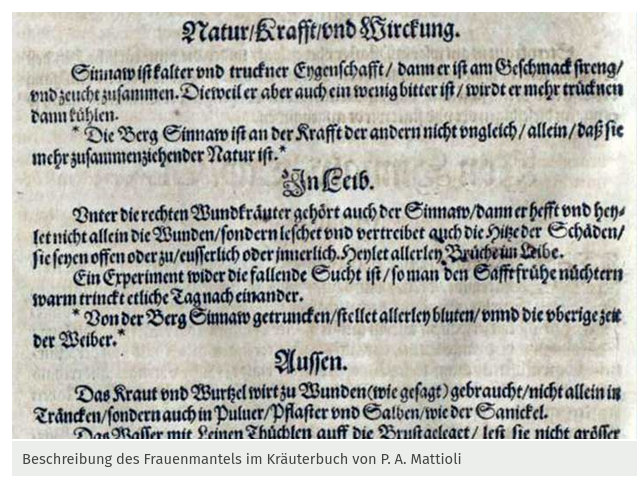 Natur/Krafft/vnd Wirckung.
Sinnaw ist kalter vnd truckner Eygenschafft/ dann er ist am Geschmack streng/
vnd zeucht zusammen. Dieweil er aber auch ein wenig bitter ist/ wirdt er mehr trücknen
dann kühlen.
* Die Berg Sinnaw ist an der Krafft der andern nicht vngleich/ allein/ daß sie
mehr zusammenziehender Natur ist.*
In Leib.
Vnter die rechten Wundkräuter gehört auch der Sinnaw/dann er hefft vnd hey-
let nicht allein die Wunden/sondern leschet vnd vertreibet auch die Hitze der Schäden/
sie seyen offen oder zu/eusserlich oder innerlich. Heylet allerley Brüche im Leibe.
Ein Experiment wider die fallende Sucht ist/ so man den Safft frühe nüchtern
warm trinckt etliche Tag nach einander.
* Von der Berg Sinnaw getruncken/stellet allerley bluten/ vnnd die vberige zeit
der Weiber.*
Aussen.
Das Kraut vnd Wurtzel wirt zu Wunden (wie gesagt) gebraucht/nicht allein in
Träncken/sondern auch in Puluer/Pflaster vnd Salben/wie der Sanickel.
Das Wasser mit Leinen Thüchlen auff die Brust gelegt/ lest sie nicht grösser
Beschreibung des Frauenmantels im Kräuterbuch von P. A. Mattioli